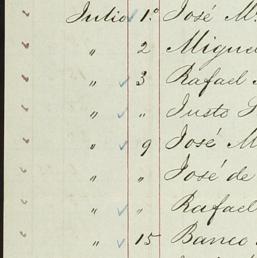 Julio 1.º José M.
" 2 Migue
" 3 Rafael
" " Justo
" 9 José M
" " José de
" " Rafael
" 15 Banco